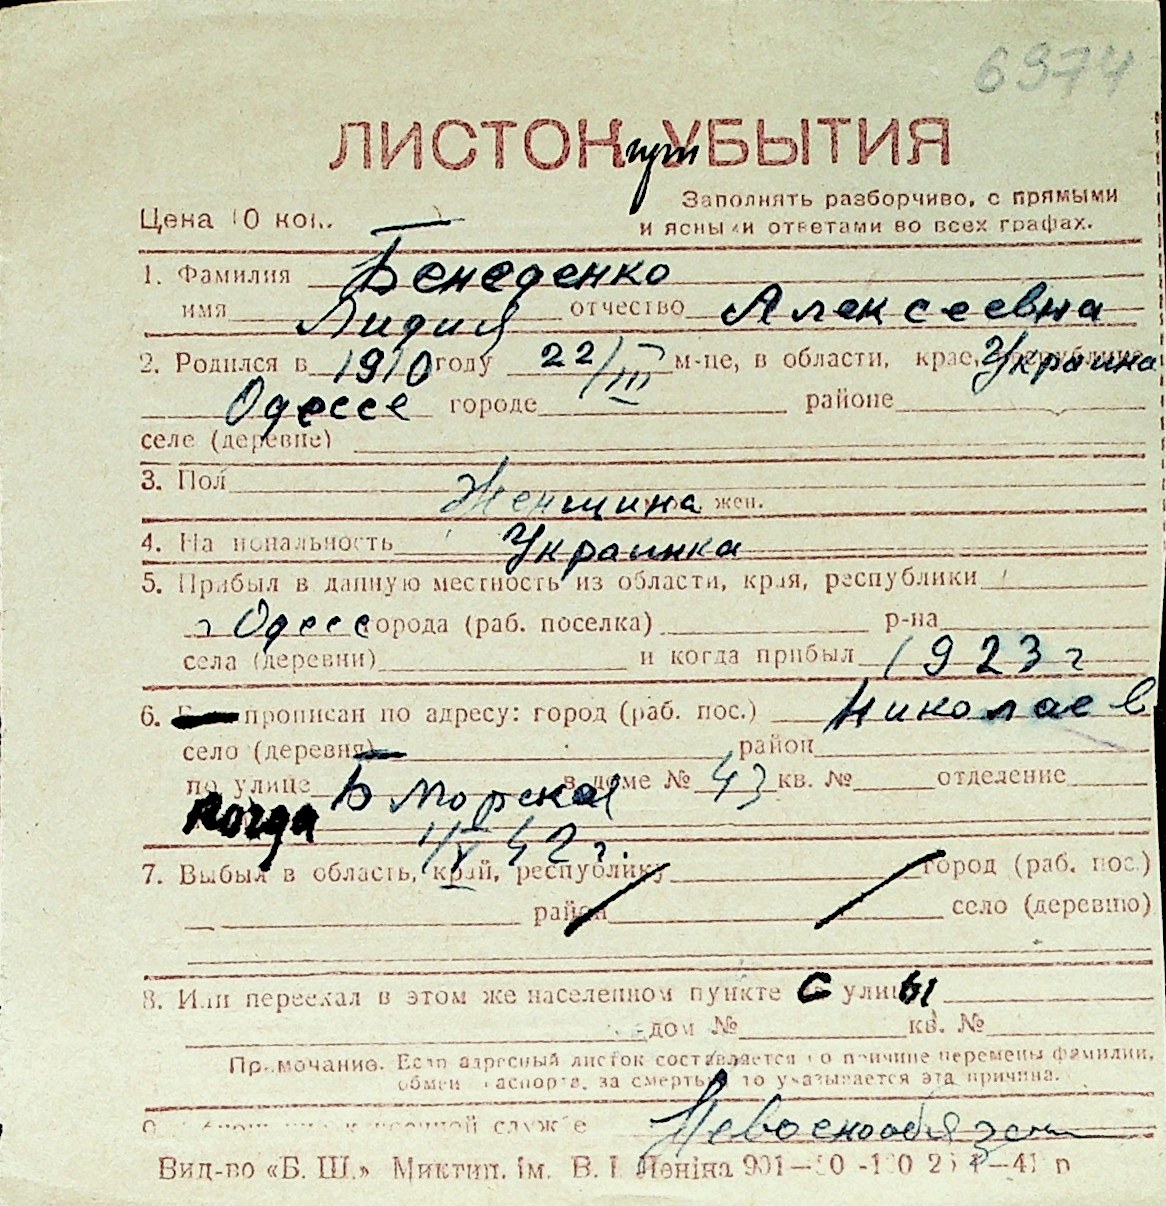 6974
ЛИСТОК УБЫТИЯ
при
Заполнять разборчиво, с прямыми
Цена 10 коп.
и ясными ответами во всех графах.
1. Фамилия Бенеденко
имя Лидия отчество Алексеевна
2. Родился в 1910 году 22/III м-це, в области, крае, республике Украина
Одессе городе районе
селе (деревне)
3. Пол Женщина жен.
4. Национальность Украинка
5. Прибыл в данную местность из области, края, республики
г Одесс города (раб. поселка) р-на
села (деревни) и когда прибыл 1923 г
6. прописан по адресу: город (раб. пос.) Николаев
село (деревня) район
по улице Б Морская в доме № 43 кв. № отделение
когда 1/V 42 г.
7. Выбыл в область, край, республику город (раб. пос.)
район село (деревню)
8. Или переехал в этом же населенном пункте с улицы
дом № кв. №
Примечание. Если адресный листок составляется по причине перемены фамилии,
обмен паспорта, за смертью, то указывается эта причина.
службе Невоеннообязан
Вид-во «Б. Ш.» Миктип. ім. В. І. Леніна